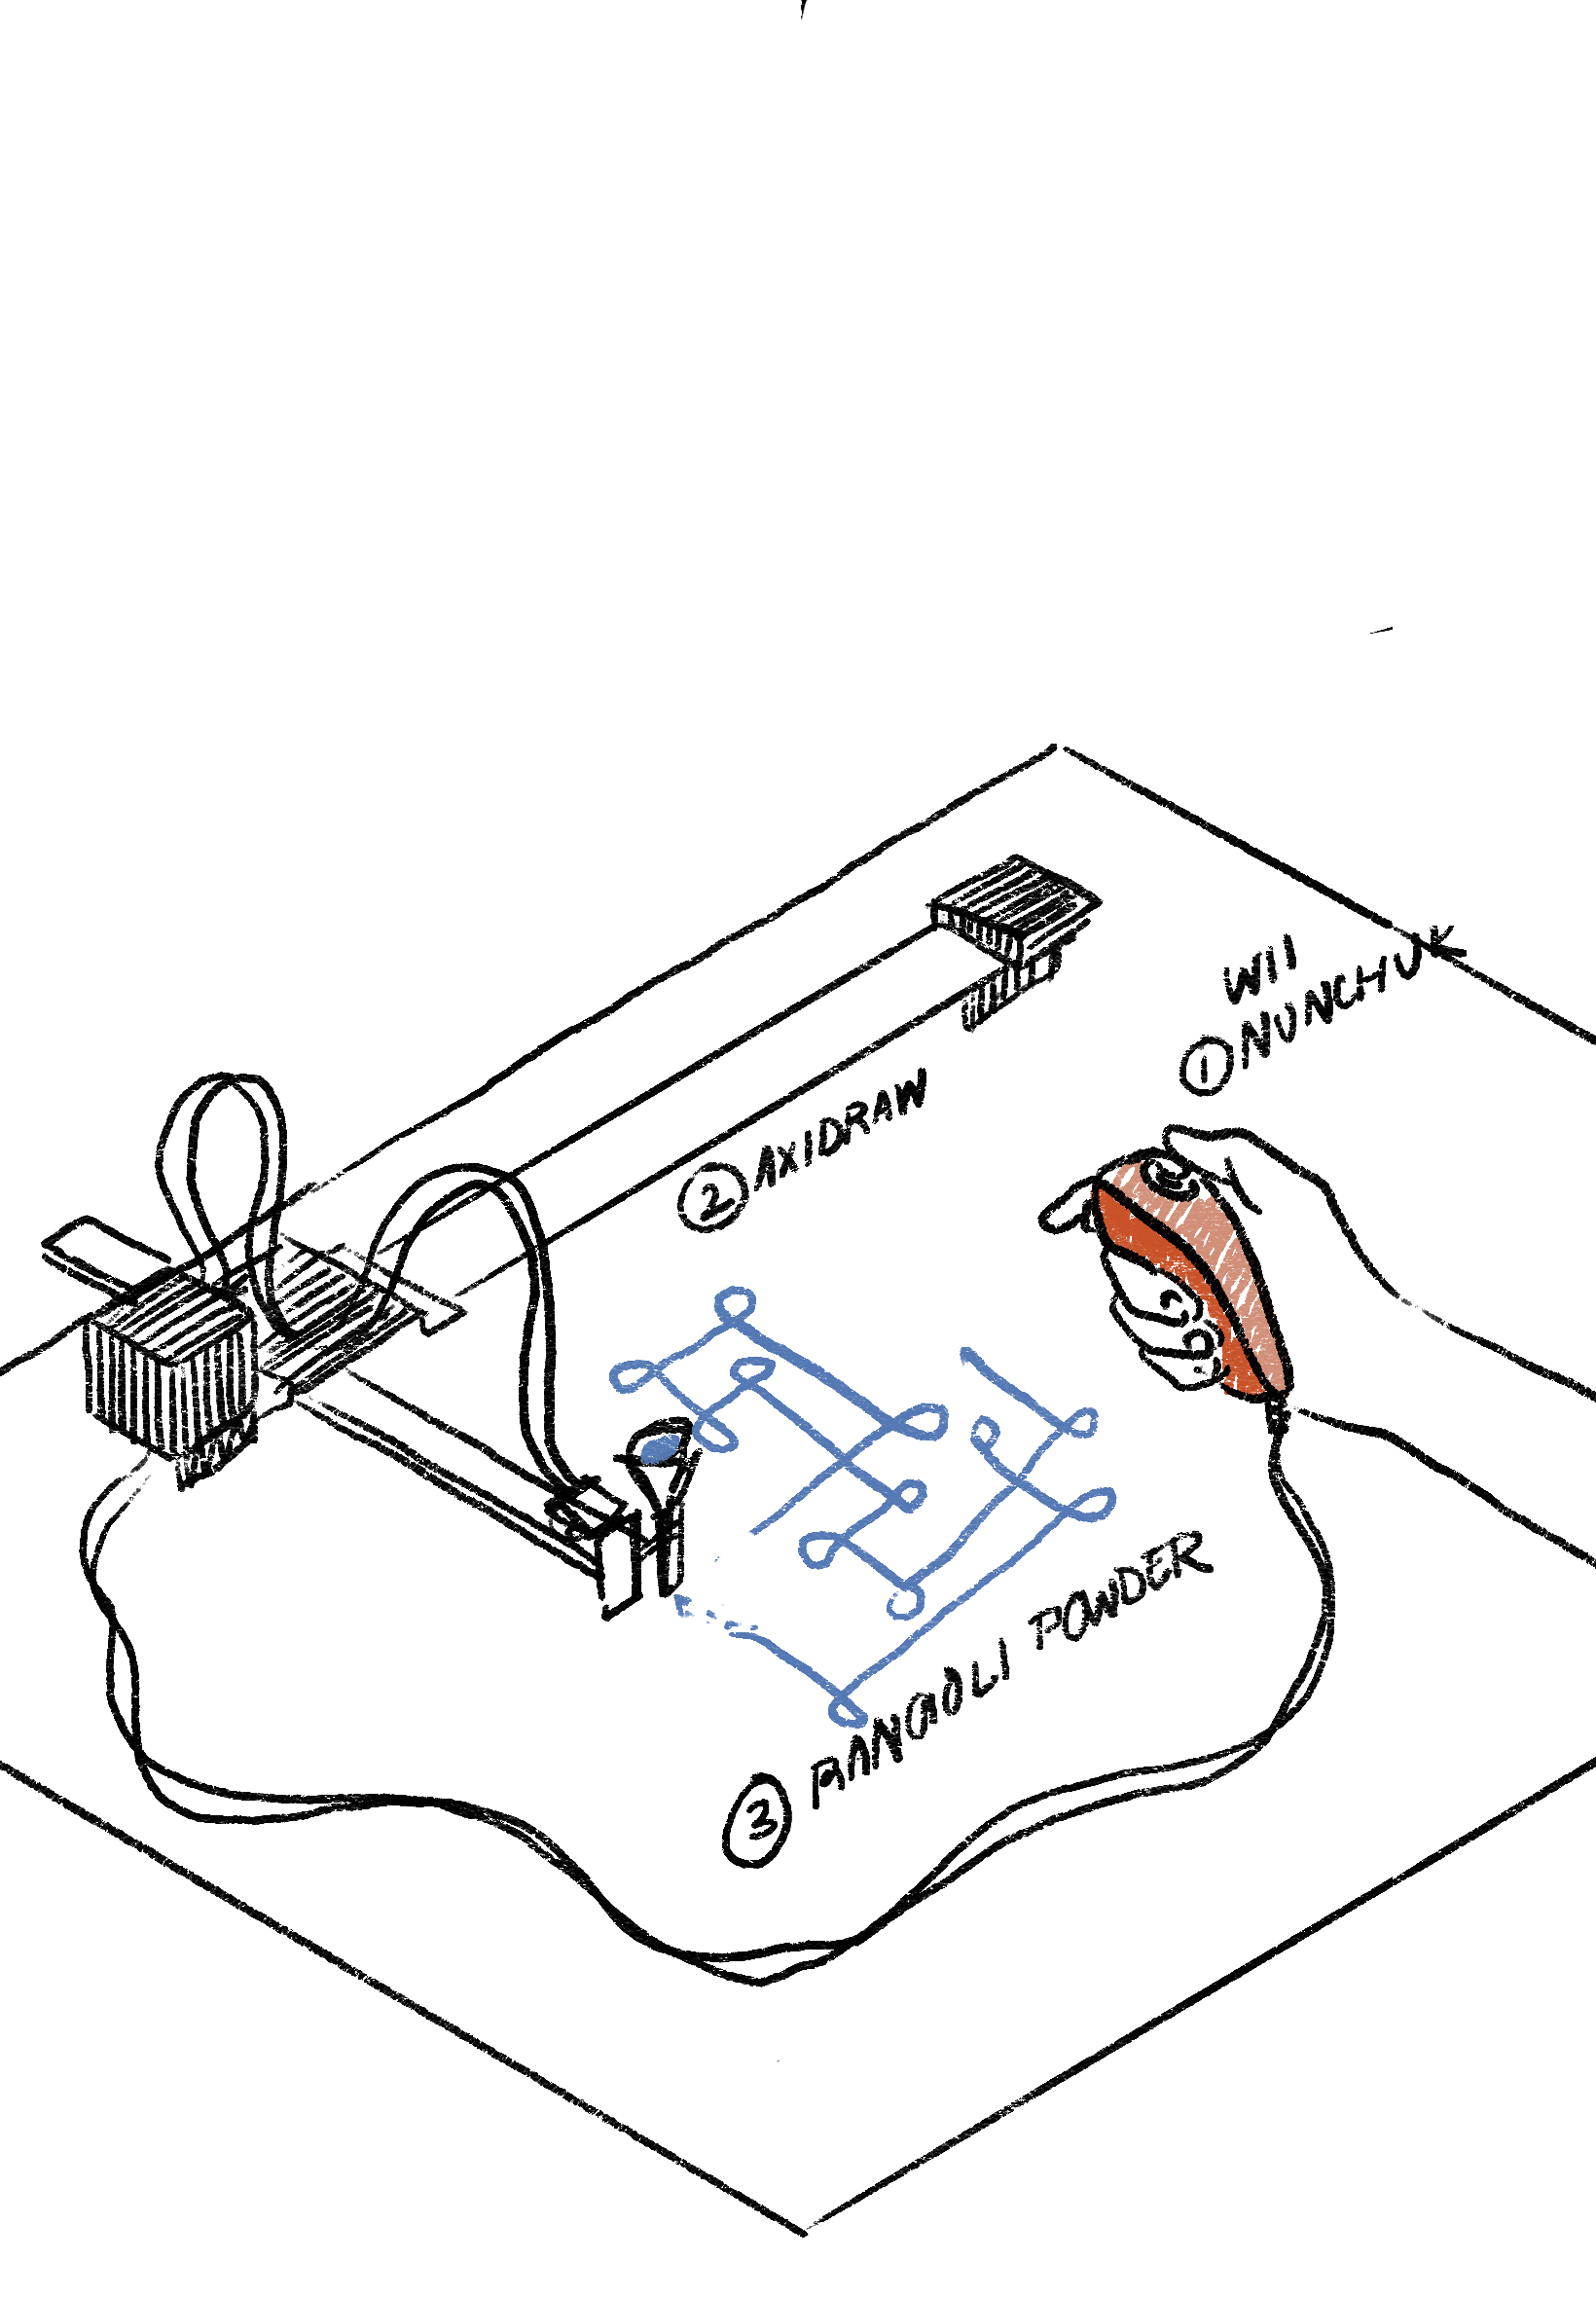 WII
① NUNCHUK
② AXIDRAW
③ RANGOLI POWDER